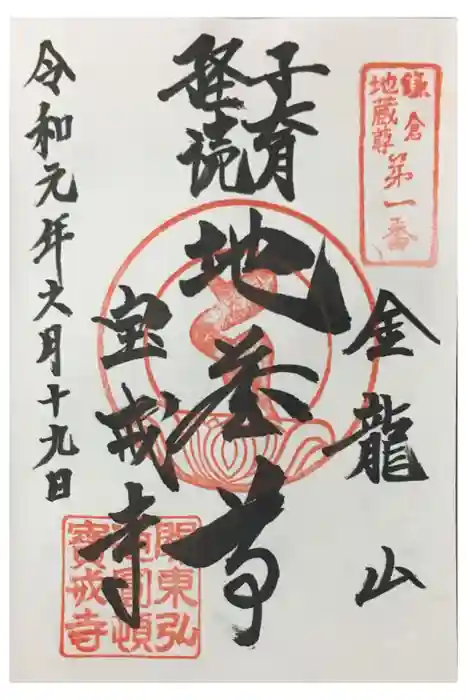 鎌倉
地蔵尊
第一番
金龍山
子育
経読
地蔵尊
宝戒寺
令和元年六月十九日
關東弘
圓頓
寶戒寺